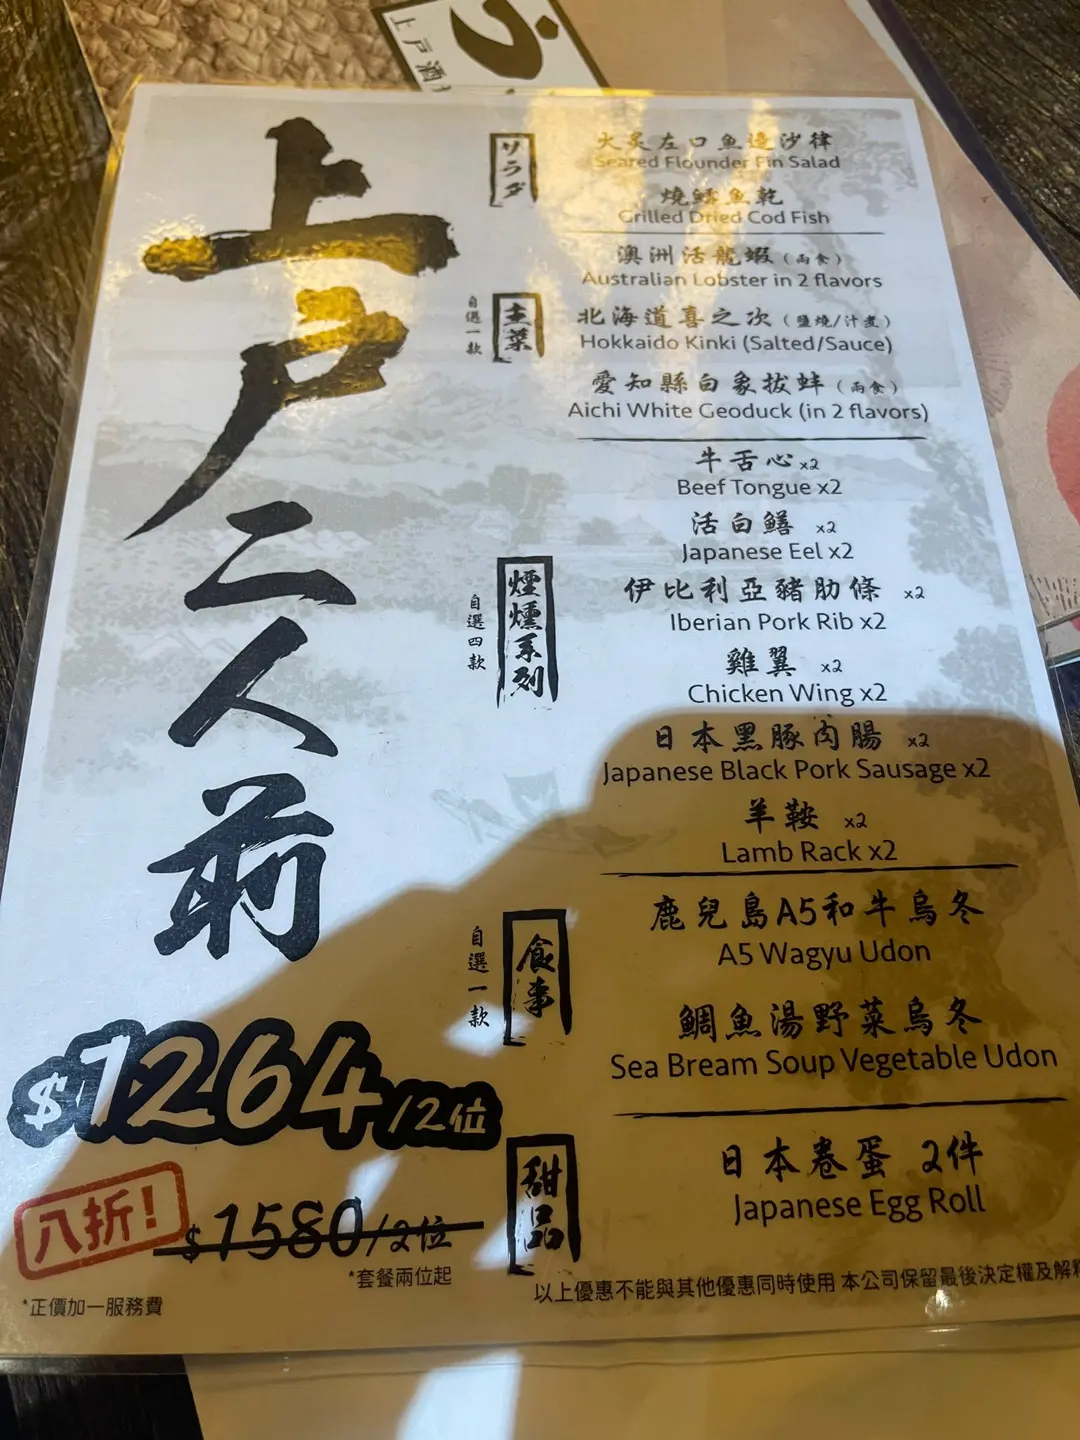 う
上戸酒
上戸二人前
サラダ
火炙左口魚邊沙律
Seared Flounder Fin Salad
燒鱈魚乾
Grilled Dried Cod Fish
主菜
自選一款
澳洲活龍蝦(兩食)
Australian Lobster in 2 flavors
北海道喜之次(鹽燒/汁煮)
Hokkaido Kinki (Salted/Sauce)
愛知縣白象拔蚌(兩食)
Aichi White Geoduck (in 2 flavors)
煙燻系列
自選四款
牛舌心x2
Beef Tongue x2
活白鱔 x2
Japanese Eel x2
伊比利亞豬肋條 x2
Iberian Pork Rib x2
雞翼 x2
Chicken Wing x2
日本黑豚肉腸 x2
Japanese Black Pork Sausage x2
羊鞍 x2
Lamb Rack x2
食事
自選一款
鹿兒島A5和牛烏冬
A5 Wagyu Udon
鯛魚湯野菜烏冬
Sea Bream Soup Vegetable Udon
甜品
日本卷蛋 2件
Japanese Egg Roll
$1264/2位
八折!
$1580/2位
*套餐兩位起
*正價加一服務費
以上優惠不能與其他優惠同時使用 本公司保留最後決定權及解釋